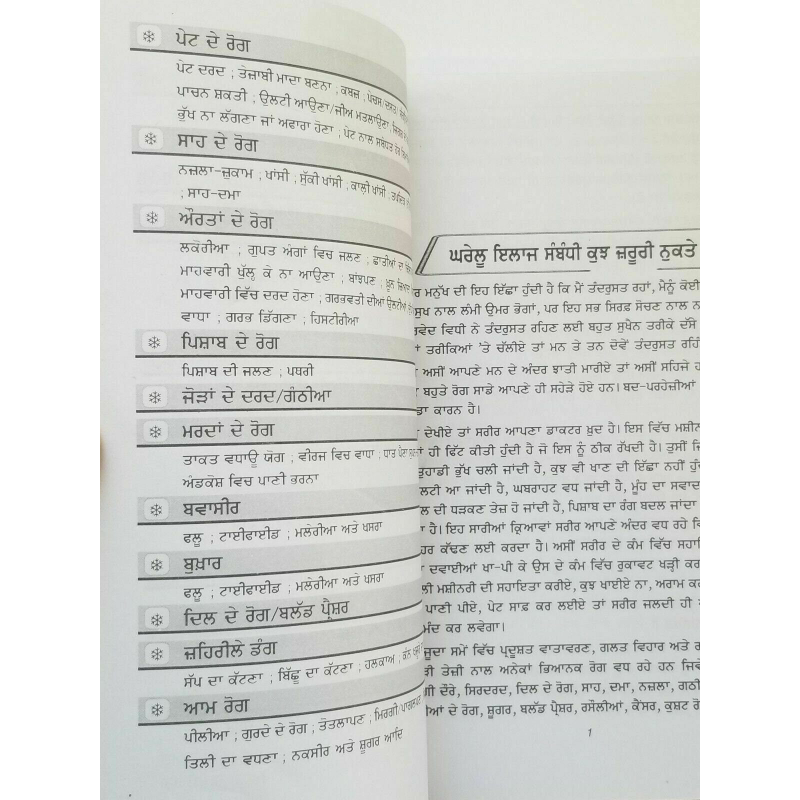 ਪੇਟ ਦੇ ਰੋਗ
ਪੇਟ ਦਰਦ ; ਤੇਜ਼ਾਬੀ ਮਾਦਾ ਬਣਨਾ ; ਕਬਜ਼ ; ਪੇਚਸ਼/ਦਸਤ
ਪਾਚਨ ਸ਼ਕਤੀ ; ਉਲਟੀ ਆਉਣਾ/ਜੀਅ ਮਤਲਾਉਣਾ
ਭੁੱਖ ਨਾ ਲੱਗਣਾ ਜਾਂ ਅਵਾਰਾ ਹੋਣਾ ; ਪੇਟ ਨਾਲ ਸਬੰਧਤ ਹੋਰ
ਸਾਹ ਦੇ ਰੋਗ
ਨਜ਼ਲਾ-ਜ਼ੁਕਾਮ ; ਖਾਂਸੀ ; ਸੁੱਕੀ ਖਾਂਸੀ ; ਕਾਲੀ ਖਾਂਸੀ
; ਸਾਹ-ਦਮਾ
ਔਰਤਾਂ ਦੇ ਰੋਗ
ਲਕੋਰੀਆ ; ਗੁਪਤ ਅੰਗਾਂ ਵਿਚ ਜਲਣ ; ਛਾਤੀਆਂ ਦਾ
ਮਾਹਵਾਰੀ ਖੁੱਲ੍ਹ ਕੇ ਨਾ ਆਉਣਾ ; ਬਾਂਝਪਣ ; ਖ਼ੂਨ
ਮਾਹਵਾਰੀ ਵਿੱਚ ਦਰਦ ਹੋਣਾ ; ਗਰਭਵਤੀ ਦੀਆਂ ਉਲਟੀਆਂ
ਵਾਧਾ ; ਗਰਭ ਡਿੱਗਣਾ ; ਹਿਸਟੀਰੀਆ
ਪਿਸ਼ਾਬ ਦੇ ਰੋਗ
ਪਿਸ਼ਾਬ ਦੀ ਜਲਣ ; ਪਥਰੀ
ਜੋੜਾਂ ਦੇ ਦਰਦ/ਗੰਠੀਆ
ਮਰਦਾਂ ਦੇ ਰੋਗ
ਤਾਕਤ ਵਧਾਊ ਯੋਗ ; ਵੀਰਜ ਵਿਚ ਵਾਧਾ ; ਧਾਤ ਪੈਣਾ
ਅੰਡਕੋਸ਼ ਵਿਚ ਪਾਣੀ ਭਰਨਾ
ਬਵਾਸੀਰ
ਫਲੂ ; ਟਾਈਫਾਈਡ ; ਮਲੇਰੀਆ ਅਤੇ ਖਸਰਾ
ਬੁਖ਼ਾਰ
ਫਲੂ ; ਟਾਈਫਾਈਡ ; ਮਲੇਰੀਆ ਅਤੇ ਖਸਰਾ
ਦਿਲ ਦੇ ਰੋਗ/ਬਲੱਡ ਪ੍ਰੈਸ਼ਰ
ਜ਼ਹਿਰੀਲੇ ਡੰਗ
ਸੱਪ ਦਾ ਕੱਟਣਾ ; ਬਿੱਛੂ ਦਾ ਕੱਟਣਾ ; ਹਲਕਾਅ ; ਕੰਨ
ਆਮ ਰੋਗ
ਪੀਲੀਆ ; ਗੁਰਦੇ ਦੇ ਰੋਗ ; ਤੋਤਲਾਪਣ ; ਮਿਰਗੀ/ਪਾਗਲਪਣ
ਤਿਲੀ ਦਾ ਵਧਣਾ ; ਨਕਸੀਰ ਅਤੇ ਸ਼ੂਗਰ ਆਦਿ
ਘਰੇਲੂ ਇਲਾਜ ਸੰਬੰਧੀ ਕੁਝ ਜ਼ਰੂਰੀ ਨੁਕਤੇ
ਰ ਮਨੁੱਖ ਦੀ ਇਹ ਇੱਛਾ ਹੁੰਦੀ ਹੈ ਕਿ ਮੈਂ ਤੰਦਰੁਸਤ ਰਹਾਂ, ਮੈਨੂੰ ਕੋਈ
ਸੁਖ ਨਾਲ ਲੰਮੀ ਉਮਰ ਭੋਗਾਂ, ਪਰ ਇਹ ਸਭ ਸਿਰਫ਼ ਸੋਚਣ ਨਾਲ
ਵੇਦ ਵਿਧੀ ਨੇ ਤੰਦਰੁਸਤ ਰਹਿਣ ਲਈ ਬਹੁਤ ਸੁਖੈਨ ਤਰੀਕੇ ਦੱਸੇ
ਤਰੀਕਿਆਂ ’ਤੇ ਚੱਲੀਏ ਤਾਂ ਮਨ ਤੇ ਤਨ ਦੋਵੇਂ ਤੰਦਰੁਸਤ
ਅਸੀਂ ਆਪਣੇ ਮਨ ਦੇ ਅੰਦਰ ਝਾਤੀ ਮਾਰੀਏ ਤਾਂ ਅਸੀਂ ਸਹਿਜੇ
ਬਹੁਤੇ ਰੋਗ ਸਾਡੇ ਆਪਣੇ ਹੀ ਸਹੇੜੇ ਹੋਏ ਹਨ। ਬਦ-ਪਰਹੇਜ਼ੀਆਂ
ਡਾ ਕਾਰਨ ਹੈ।
ਦੇਖੀਏ ਤਾਂ ਸਰੀਰ ਆਪਣਾ ਡਾਕਟਰ ਖ਼ੁਦ ਹੈ। ਇਸ ਵਿੱਚ ਮਸ਼ੀਨ
ਹੀ ਫਿੱਟ ਕੀਤੀ ਹੁੰਦੀ ਹੈ ਜੋ ਇਸ ਨੂੰ ਠੀਕ ਰੱਖਦੀ ਹੈ। ਤੁਸੀਂ
ਤੁਹਾਡੀ ਭੁੱਖ ਚਲੀ ਜਾਂਦੀ ਹੈ, ਕੁਝ ਵੀ ਖਾਣ ਦੀ ਇੱਛਾ ਨਹੀਂ
ਲਟੀ ਆ ਜਾਂਦੀ ਹੈ, ਘਬਰਾਹਟ ਵਧ ਜਾਂਦੀ ਹੈ, ਮੂੰਹ ਦਾ ਸਵਾਦ
ਲ ਦੀ ਧੜਕਣ ਤੇਜ਼ ਹੋ ਜਾਂਦੀ ਹੈ, ਪਿਸ਼ਾਬ ਦਾ ਰੰਗ ਬਦਲ ਜਾਂਦਾ
ਹੈ। ਇਹ ਸਾਰੀਆਂ ਕ੍ਰਿਆਵਾਂ ਸਰੀਰ ਆਪਣੇ ਅੰਦਰ ਵਧ ਰਹੇ
ਹਰ ਕੱਢਣ ਲਈ ਕਰਦਾ ਹੈ। ਅਸੀਂ ਸਰੀਰ ਦੇ ਕੰਮ ਵਿੱਚ
ਦਵਾਈਆਂ ਖਾ-ਪੀ ਕੇ ਉਸ ਦੇ ਕੰਮ ਵਿੱਚ ਰੁਕਾਵਟ ਖੜ੍ਹੀ
ਲੀ ਮਸ਼ੀਨਰੀ ਦੀ ਸਹਾਇਤਾ ਕਰੀਏ, ਕੁਝ ਖਾਈਏ ਨਾ, ਅਰਾਮ
ਪਾਣੀ ਪੀਏ, ਪੇਟ ਸਾਫ਼ ਕਰ ਲਈਏ ਤਾਂ ਸਰੀਰ ਜਲਦੀ ਹੀ
ਮੰਦ ਕਰ ਲਵੇਗਾ।
ਜੂਦਾ ਸਮੇਂ ਵਿੱਚ ਪ੍ਰਦੂਸ਼ਤ ਵਾਤਾਵਰਣ, ਗਲਤ ਵਿਹਾਰ ਅਤੇ
ਤੇਜ਼ੀ ਨਾਲ ਅਨੇਕਾਂ ਭਿਆਨਕ ਰੋਗ ਵਧ ਰਹੇ ਹਨ
ਦੌਰੇ, ਸਿਰਦਰਦ, ਦਿਲ ਦੇ ਰੋਗ, ਸਾਹ, ਦਮਾ, ਨਜ਼ਲਾ,
ਦੇ ਰੋਗ, ਸ਼ੂਗਰ, ਬਲੱਡ ਪ੍ਰੈਸ਼ਰ, ਰਸੌਲੀਆਂ, ਕੈਂਸਰ, ਕੁਸ਼ਟ
1